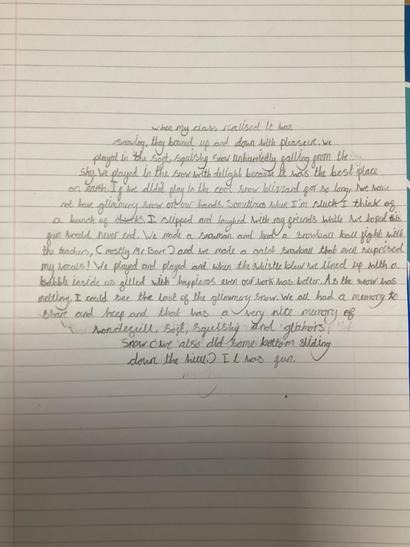 when my class realised it was
snowing, they bounced up and down with pleasure. We
played in the soft, squishy snow unhurriedly falling from the
sky. We played in the snow with delight because it was the best place
on earth. If we didd't play in the cool snow blizzard for so long, we would
not have glimmery snow on our hands. Sometimes when I'm stuck I think of
a bunch of I slipped and laughed with my friends while we hoped this
fun would never end. We made a snowman and had a snowball ball fight with
the teachers, (mostly Mr Barr) and we made a snowball that even suprised
my vocals! We played and played and when the whistle blew we lined up with a
bubble inside us filled with happiness even our work was better. As the snow was
melting, I could see the last of the glimmery snow. We all had a memory to
share and keep and that was a very nice memory of
wonderfull, soft, squishy and
snow. (we also did some bottom sliding
down the hill.) It was fun.